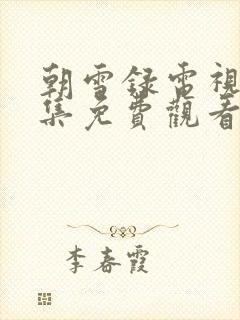 朝雪録電視
集免費觀看
李春霞